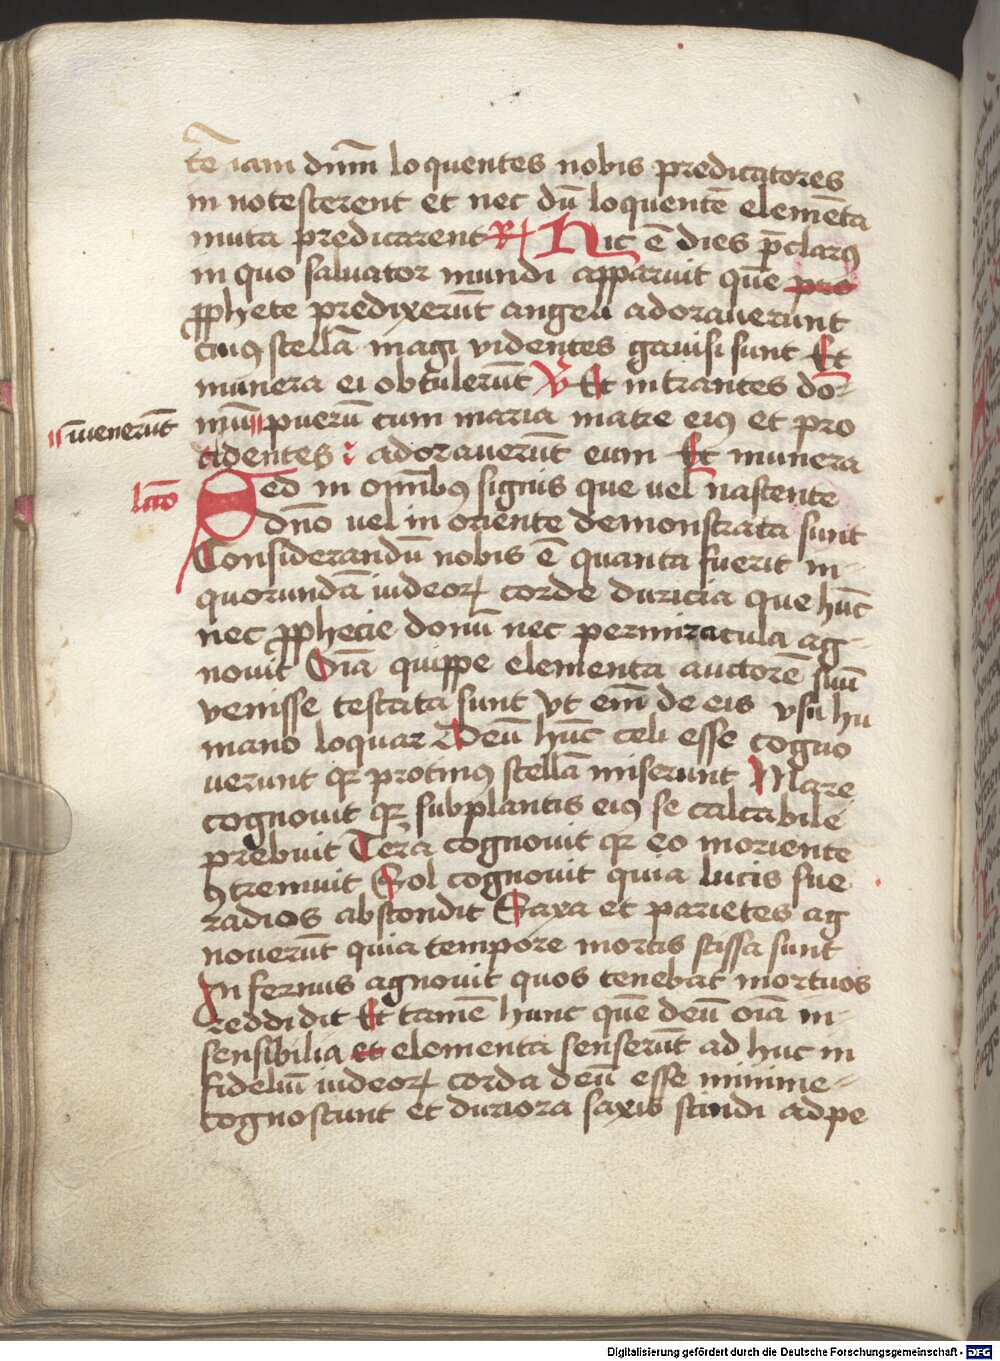 tē iam dnm̄ loquentes nobis predicatores
in notescerent et nec dū loquentē elemēta
muta predicarent R Hic ē dies p̄clarꝰ
in quo saluator mundi apparuit quē pro
ꝓphete predixerūt angeli adorauerunt
cuiꝰ stellā magi videntes gauisi sunt Et
munera ei obtulerūt V Et intrantes do-
mū puerū cum maria matre eiꝰ et pro
inuenerūt
cidentes adorauerūt eum Et munera
lcō
Sed in omībꝰ signis que vel nascente
dn̄o vel in oriente demonstrata sunt
Considerandū nobis ē quanta fuerit in-
quorundā iudeoꝝ corde duricia que hūc
nec ꝓphecie donū nec per miracula ag-
nouit Oīa quippe elementa auctorē suū
venisse testata sunt Vt em̄ de eis vsu hu
mano loquar Deū hūc celi esse cogno
uerunt qꝛ protinꝰ stellā miserunt Mare
cognouit qꝛ sub plantis eiꝰ se calcabile
prebuit Terra cognouit qꝛ eo moriente
ꝯtremuit Sol cognouit quia lucis sue
radios abscondit Saxa et parietes ag
nouerūt quia tempore mortis scissa sunt
Infernus agnouit quos tenebat mortuos
reddidit Et tamē hunc quē deū oīa in-
sensibilia et elementa senserūt ad huc in
fideliū iudeoꝝ corda deū esse minime-
cognoscunt et duriora saxis scindi ad pe
Digitalisierung gefördert durch die Deutsche Forschungsgemeinschaft - DFG